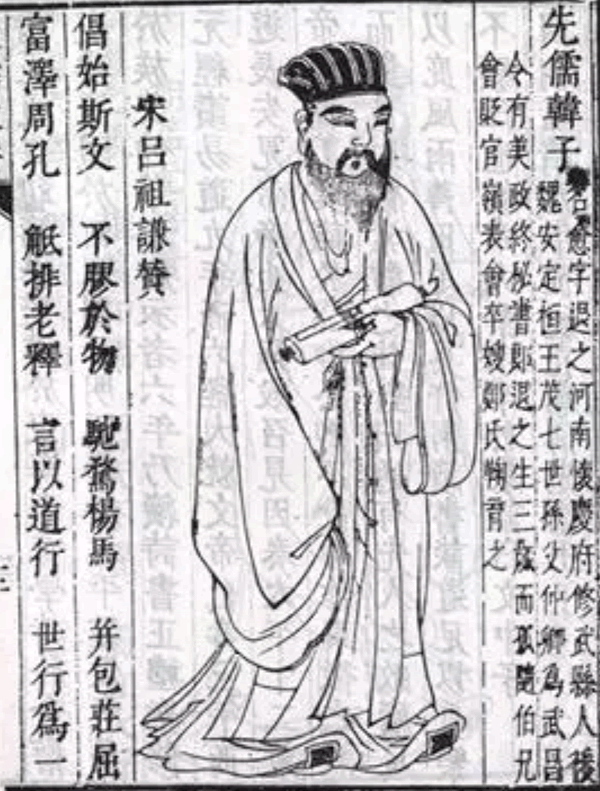 先儒韓子
名愈字退之河南懷慶府修武縣人後
魏安定桓王茂七世孫父仲卿為武昌
令有美政終秘書郎退之生三歲而孤隨伯兄
會貶官嶺表會卒嫂鄭氏鞠育之
宋呂祖謙贊
倡始斯文 不膠於物 馳騖楊馬 并包莊屈
富澤周孔 觝排老釋 言以道行 世行為一